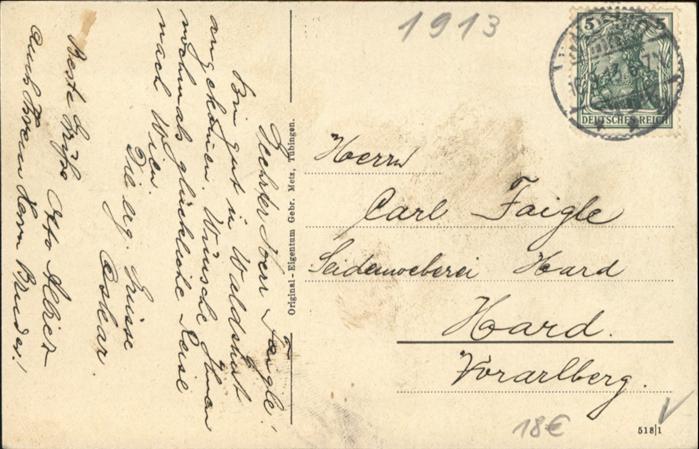 1913
5 5
DEUTSCHES REICH
Geehrter Herr Faigle!
Bin gut in Waldshut
angekommen. Wünsche Ihnen
nochmals glückliche Reise
nach Wien.
Erg. Grüsse
Oskar.
Beste Grüße Otto Albiez
auch Ihrem Herrn Bruder!
Original-Eigentum Gebr. Metz, Tübingen.
Herrn
Carl Faigle
Seidenweberei Hard
Hard.
Vorarlberg.
18€
518|1